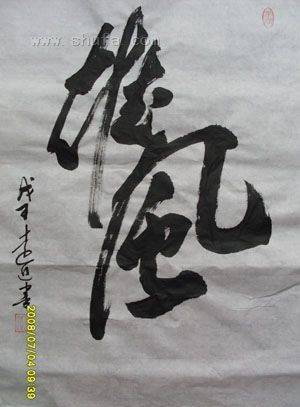 www.shufa.com
雄風
戊子
書
2008/07/04 09:39